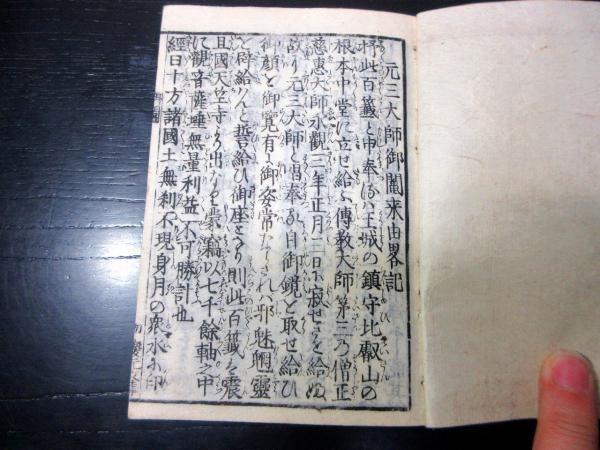 元三大師御鬮来由畧記
抑此百籤と申奉るハ王城の鎮守比叡山の
根本中堂に立せ給ふ傳教大師第三乃僧正
慈惠大師永觀三年正月三日に寂せさせ給ぬ
故に元三大師と号奉る自御鏡と取せ給ひ
御顔を御覧有に御姿常たらされハ邪魅魍靈
を砕給んと誓給ひ御座とな り則此百籤は震
且國天竺寺より出たりと
竊以七千餘軸之中
に観音薩埵無量利益不可勝計也
經曰十方諸國土無刹不現身月の衆水に印